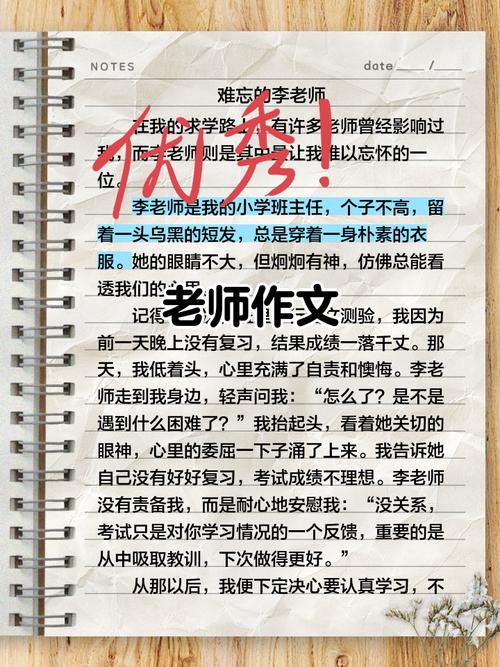 NOTES
date ____ / ____
难忘的李老师
在我的求学路上，有许多老师曾经影响过
我，而李老师则是其中最让我难以忘怀的一
位。
优秀！
李老师是我的小学班主任，个子不高，留
着一头乌黑的短发，总是穿着一身朴素的衣
服。她的眼睛不大，但炯炯有神，仿佛总能看
透我们的心思
老师作文
记得 测验，我因为
前一天晚上没有复习，结果成绩一落千丈。那
天，我低着头，心里充满了自责和懊悔。李老
师走到我身边，轻声问我：“怎么了？是不是
遇到什么困难了？”我抬起头，看着她关切的
眼神，心里的委屈一下子涌了上来。我告诉她
自己没有好好复习，考试成绩不理想。李老师
没有责备我，而是耐心地安慰我：“没关系，
考试只是对你学习情况的一个反馈，重要的是
从中吸取教训，下次做得更好。”
从那以后，我便下定决心要认真学习，不